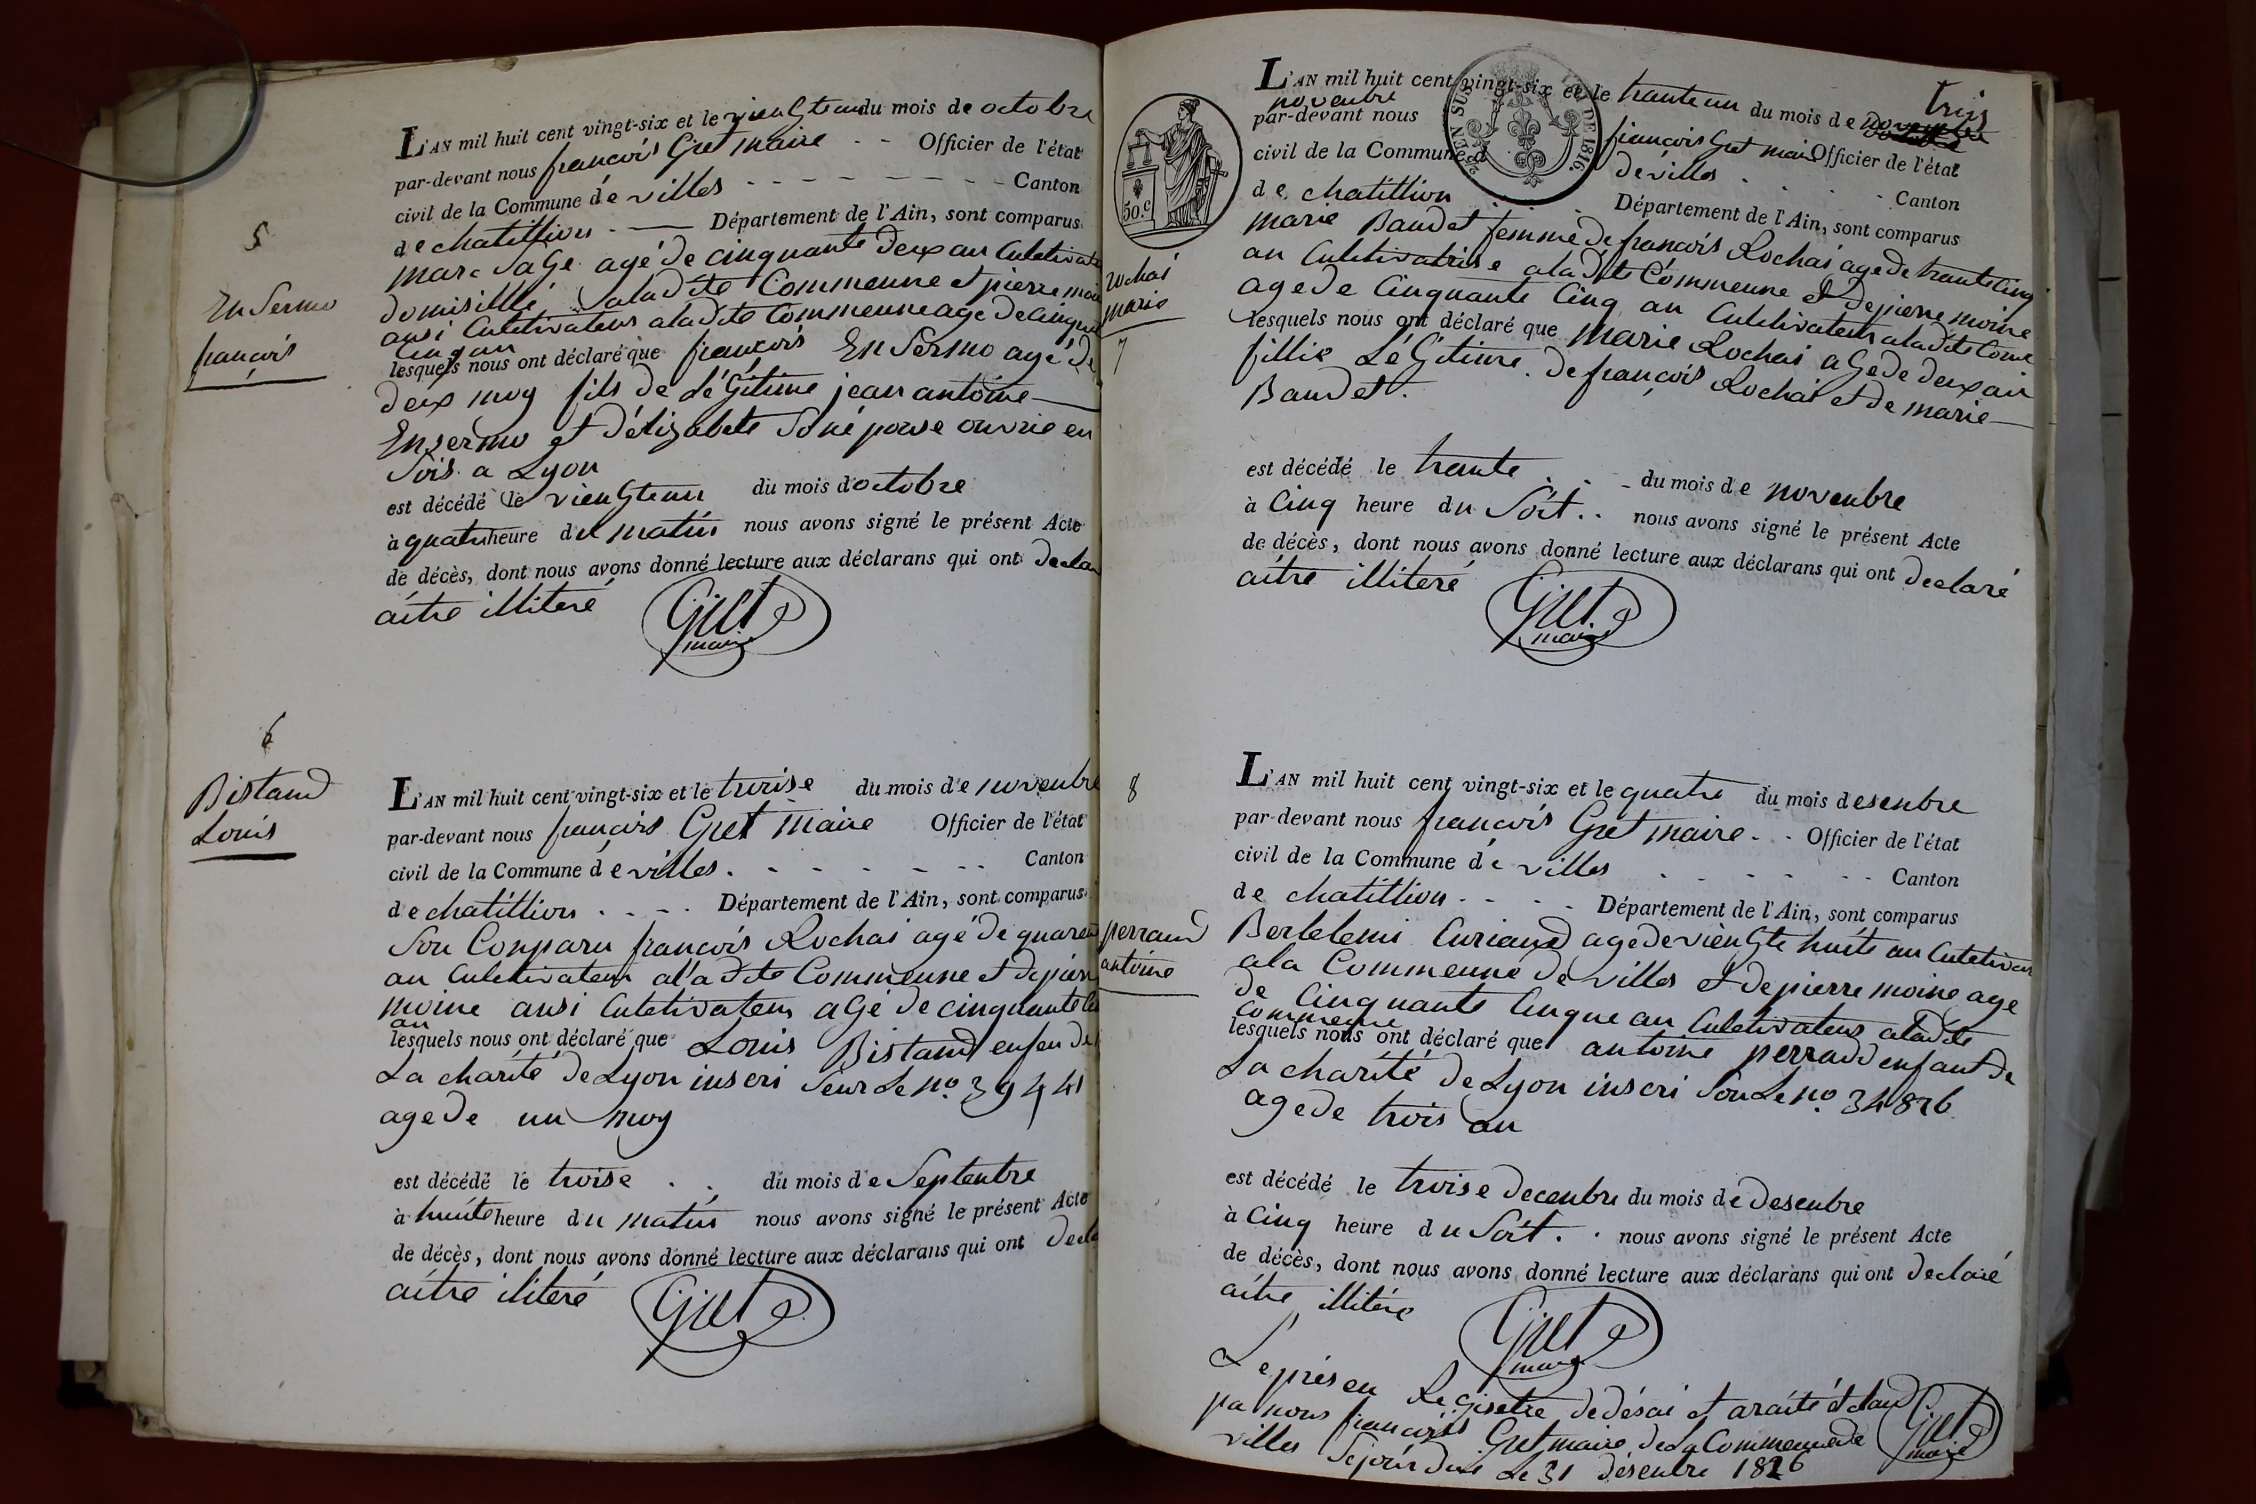 5
En Sermo
françois
L'AN mil huit cent vingt-six et le viengteun du mois de octobre
par-devant nous françois Gret maire - - Officier de l'état
civil de la Commune de villes - - - - - - - - Canton
de chatillion - — Département de l'Ain, sont comparus
marc SaGe agé de cinquante deux an Culetivate
domisillié a la dite Commeune et pierre moine
ausi Culetivateur a la dite Commeune age de cinquante
Cinq an
lesquels nous ont déclaré que françois En Sermo agé de
deux moy fils de LéGitime jean antoine —
Ensermo et d'élizabete ouvrie en
Sois a Lyon
est décédé le viengteun du mois d'octobre
à quatre heure du matin nous avons signé le présent Acte
de décès, dont nous avons donné lecture aux déclarans qui ont declar
aitre illiteré
Gret
maire
6
Bistand
Louis
L'AN mil huit cent vingt-six et le troise du mois de novenbre
par-devant nous françois Gret maire Officier de l'état
civil de la Commune de villes - - - - - - - Canton
de chatillion - - - - Département de l'Ain, sont comparus
Son Conparu françois Rochai agé de quarente
an Culetivateur a la dite Commeune et de pierre
moine ausi Culetivateur aGé de cinquante Cin
an
lesquels nous ont déclaré que Louis Bistand enfen de
La charité de Lyon inscri Seur Le no. 39441
age de un moy
est décédé le troise - . du mois de Septenbre
à huite heure du matin nous avons signé le présent Acte
de décès, dont nous avons donné lecture aux déclarans qui ont decla
aitre ilitéré
Gret
trois
50.c
EN SUS
DE 1816.
rochai
marie
7
L'AN mil huit cent vingt-six et le tranteun du mois de
novenbre
par-devant nous françois Gret maire Officier de l'état
civil de la Commune de villes - - - - Canton
de chatillion - - - Département de l'Ain, sont comparus
marie Baudet femme de françois Rochai age de trante Cinq
an Culetivatrise a la dite Commeune et de pierre moine
age de Cinquante Cinq an Culetivateur a la dite Come
lesquels nous ont déclaré que Marie Rochai aGe de deux an
fillie LéGitime de françois Rochai et de marie —
Baudet.
est décédé le trante - - - du mois de novenbre
à Cinq heure du Soit. . nous avons signé le présent Acte
de décès, dont nous avons donné lecture aux déclarans qui ont declaré
aitre illiteré
Gret
maire
8
perraud
antoine
L'AN mil huit cent vingt-six et le quatre du mois desenbre
par-devant nous françois Gret maire - - Officier de l'état
civil de la Commune de villes - - - - - - Canton
de chatillion - - - - Département de l'Ain, sont comparus
Bertelemi Curiand age de viengte huite an Culetivat
a la Commeune de villes et de pierre moine age
de Cinquante Cinque an Culetivateur a la dite
commeune
lesquels nous ont déclaré que antoine perraud enfant de
La charité de Lyon inscri Sou Le no. 34826
age de trois an
est décédé le troise decenbre du mois de desenbre
à Cinq heure du Soit. . nous avons signé le présent Acte
de décès, dont nous avons donné lecture aux déclarans qui ont declaré
aitre illitéré
Gret
maire
Le présen Regisetre de désai et araité et claud
pa nous françois Gret maire de La Commeune de
villes Le 31 désenbre 1826
Gret
maire